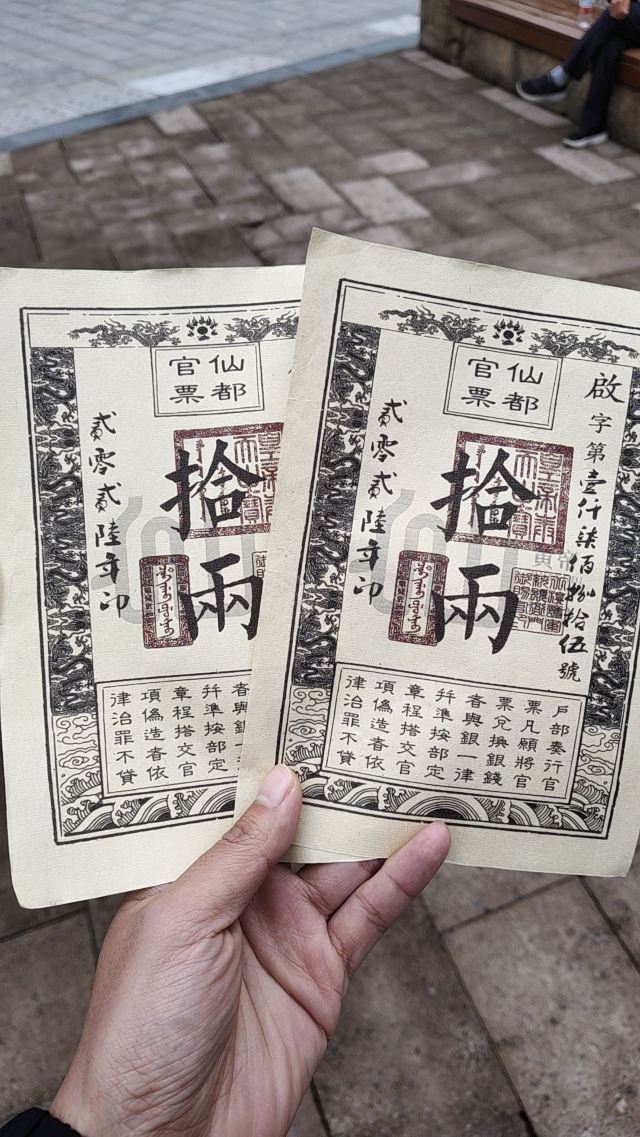 仙都
官票
拾兩
貳零貳陸年印
者與銀
幷準按部定
章程搭交官
項偽造者依
律治罪不貸
啟字第壹仟柒佰捌拾伍號
仙都
官票
拾兩
貳零貳陸年印
戶部奏行官
票凡願將官
票兌換銀錢
者與銀一律
幷準按部定
章程搭交官
項偽造者依
律治罪不貸